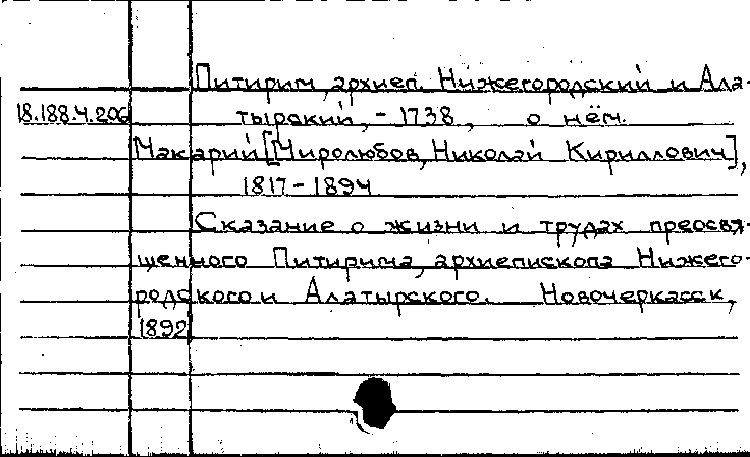 Питирим, архиеп. Нижегородский и Ала-
18.188.4.206 тырский, - 1738, о нём.
Макарий [Миролюбов, Николай Кириллович],
1817 - 1894
Сказание о жизни и трудах преосвя-
щенного Питирима, архиепископа Нижего-
родского и Алатырского. Новочеркасск,
1892